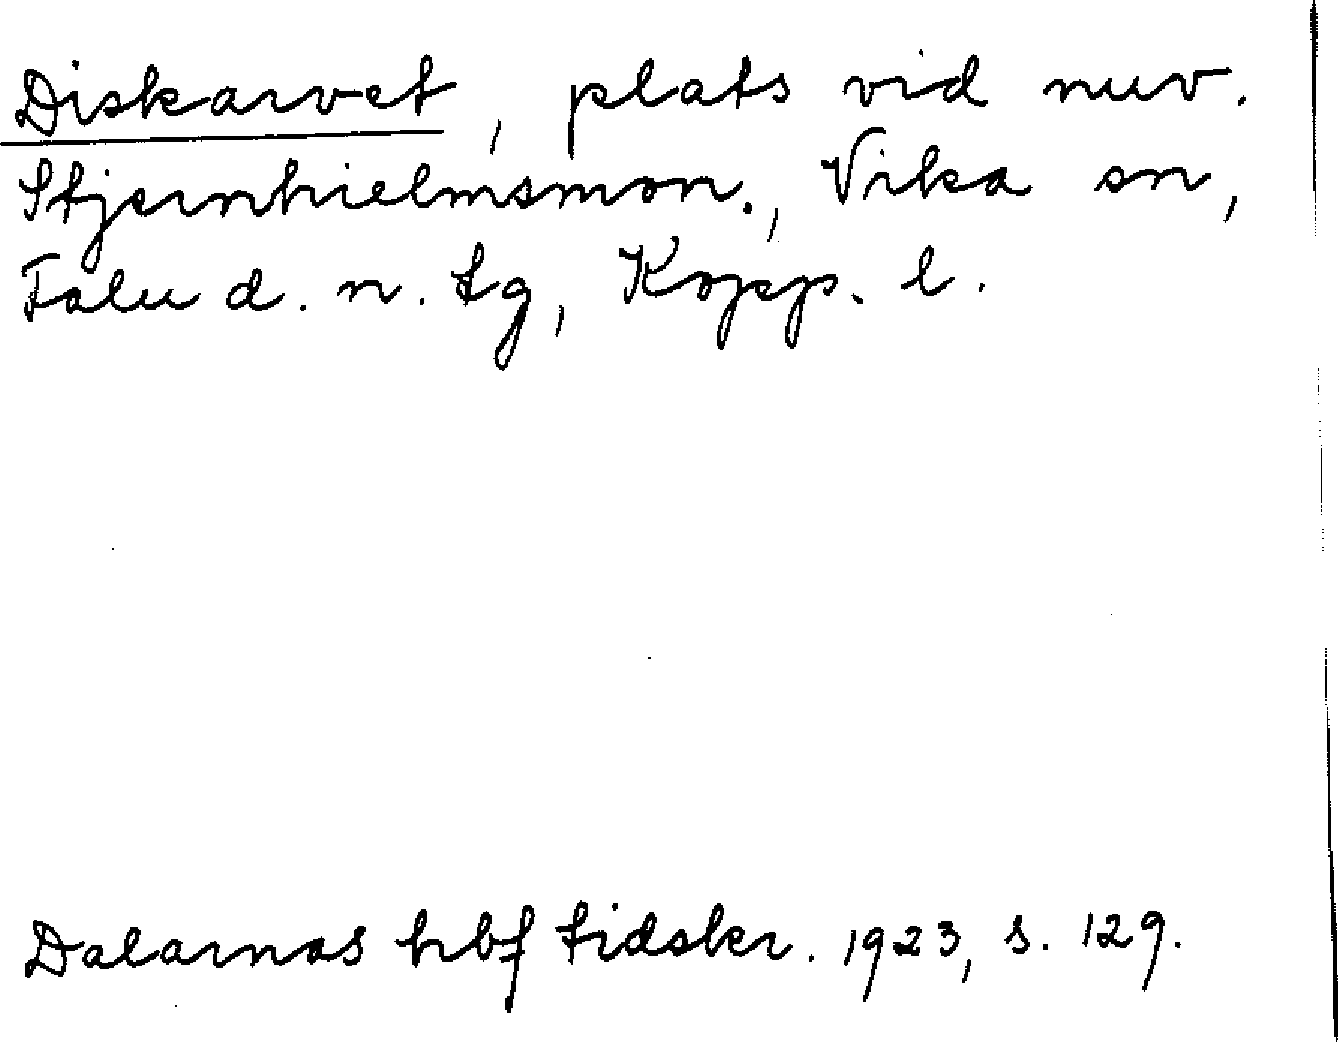 Diskarvet, plats vid nuv.
Stjernhielmsmon., Vika sn,
Falu d. n. tg, Kopp. l.
Dalarnas hbf tidskr. 1923, s. 129.